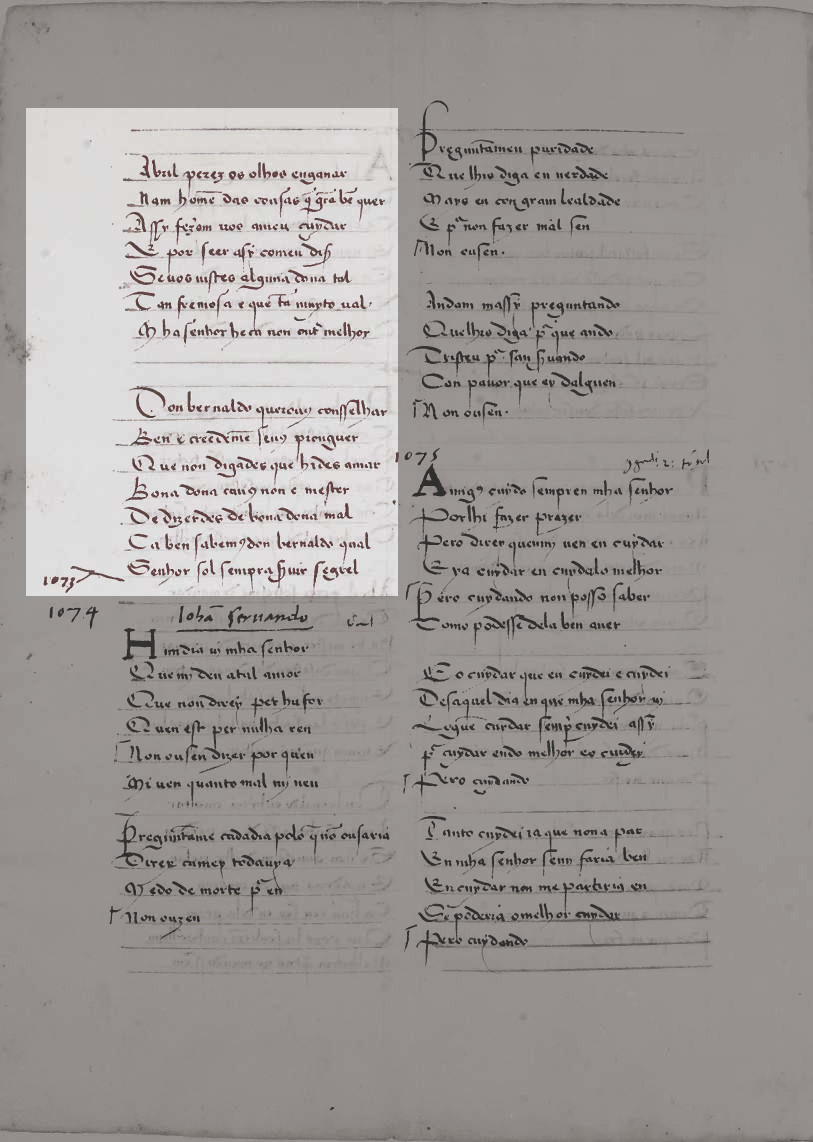 Abril perez os olhos enganar
Uam home das cousas q̃ grã bẽ quer
Assy fezerom uos ameu cuydar
E por seer assy comeu dis
Seuos uistes alguna dona tal
Tan fremosa e que tã muyto ual
Mha senhor he ca non out melhor
Don bernaldo querouꝯ consselhar
Ben e creedeme senꝯ prouguer
Que non digades que hides amar
Bona dona cauꝯ non e mester
De dizerdes de bona dona mal
Ca ben sabemꝯ don bernaldo qual
Senhor sol sempra seruir segrel
1073
1074
Iohã seruando
Hun dia ui mha senhor
Que mi deu atal amor
Que non direy per hu for
Quen est per nulha ren
Non ousen dizer por quen
Mi uen quanto mal mi uen
Pregũtãme cadadia polo q̃ nõ ousaria
Dizer camey todauya
Medo de morte pᵃ en
Non ouzen
Preguntãmeu puridade
Que lhis diga en uerdade
Mays eu con gram lealdade
E pᵃ non fazer mal sen
Non ousen.
Andam massy preguntando
Quelhis diga pᵃ que ando
Tristeu pᵃ san seruando
Con pauor que ey dalguen
Non ousen.
1075
Amigꝯ cuydo sempren mha senhor
Porlhi fazer prazer
Pero direr quemꝯ uen en cuydar
E ya cuydar en cuydalo melhor
Pero cuydando non posso saber
Como podesse dela ben auer
E o cuydar que en cuydei e cuydei
Desaquel dia en que mha senhor ui
Logue cuydar semp̃ cuydei assy
pᵃ cuydar endo melhor eo cuidey
Pero cuydando
Tanto cuydei ia que non a par
En mha senhor senꝯ faria ben
En cuydar non me partiria en
Se poderia o melhor cuydar
Pero cuydando